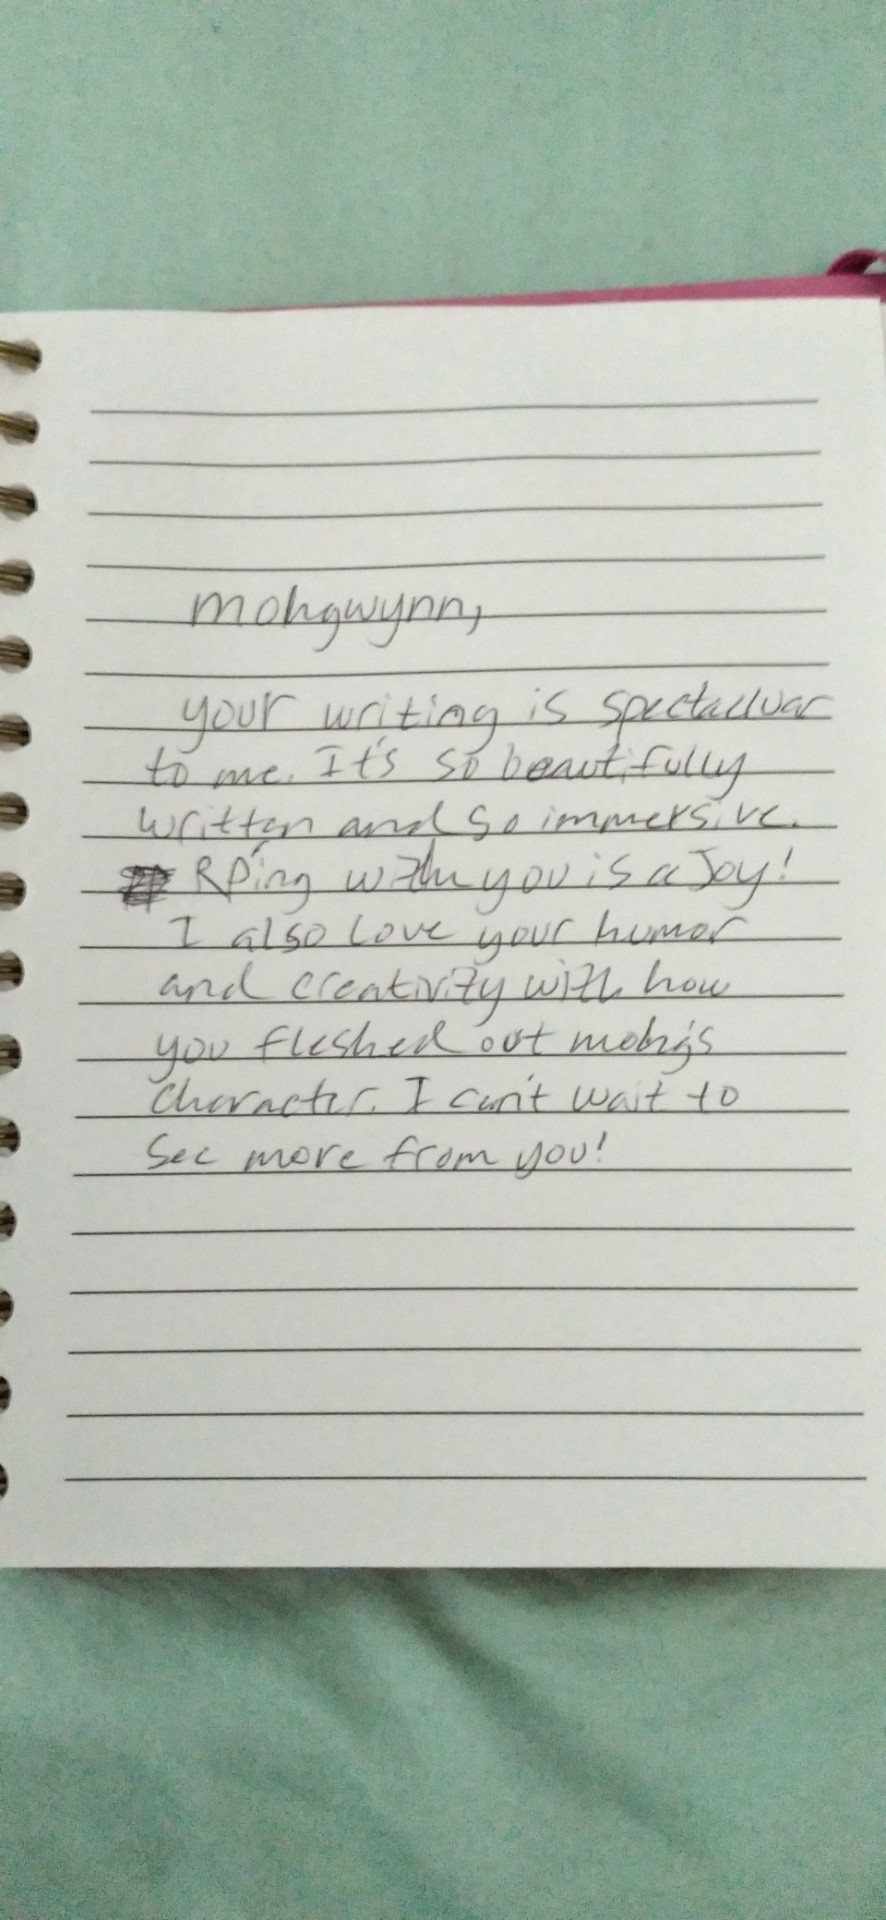 mohgwynn,
your writing is spectacluar
to me. It's so beautifully
written and so immersive.
RPing with you is a Joy!
I also love your humor
and creativity with how
you fleshed out mohg's
character. I can't wait to
see more from you!